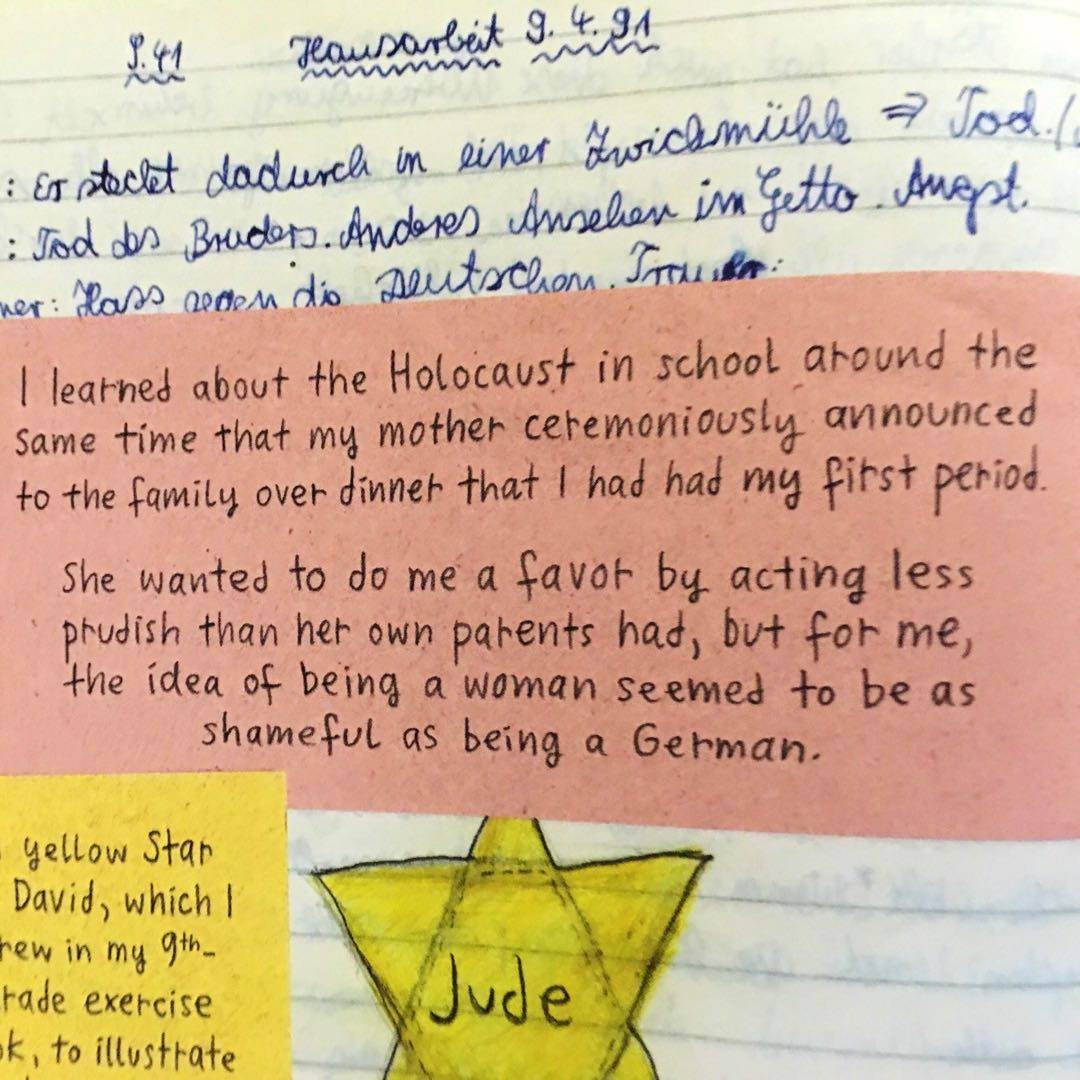 S.41 Hausarbeit 9.4.91
: Er steckt dadurch in einer Zwickmühle ⇒ Tod.
: Tod des Bruders. Anderes Ansehen im Getto. Angst.
ner: Hass gegen die Deutschen. Trauer.
I learned about the Holocaust in school around the
same time that my mother ceremoniously announced
to the family over dinner that I had had my first period.
She wanted to do me a favor by acting less
prudish than her own parents had, but for me,
the idea of being a woman seemed to be as
shameful as being a German.
yellow Star
David, which I
rew in my 9th-
rade exercise
ok, to illustrate
Jude